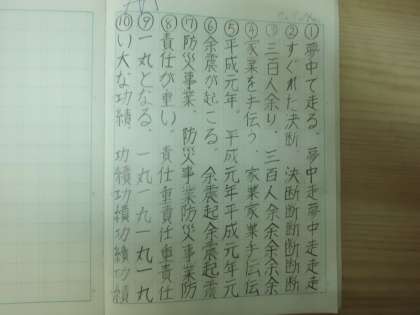 ①夢中で走る。夢中走夢中走走走
②すぐれた決断 決断断断断断
③三百人余り、三百人余余余余
④家業を手伝う、家業家業手伝伝
⑤平成元年、平成元年平成元年元
⑥余震が起こる、余震起余震起震
⑦防災事業、防災事業防災事業防
⑧責任が重い。責任重責任重責任
⑨一丸となる、一丸一丸一丸一丸
⑩い大な功績、功績功績功績功績